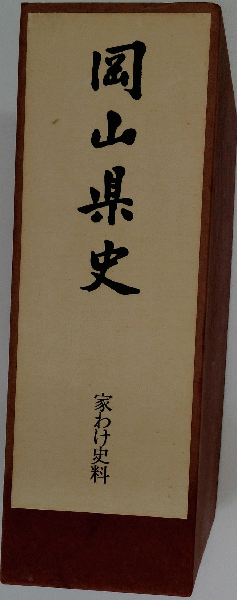 岡山県史
家わけ史料